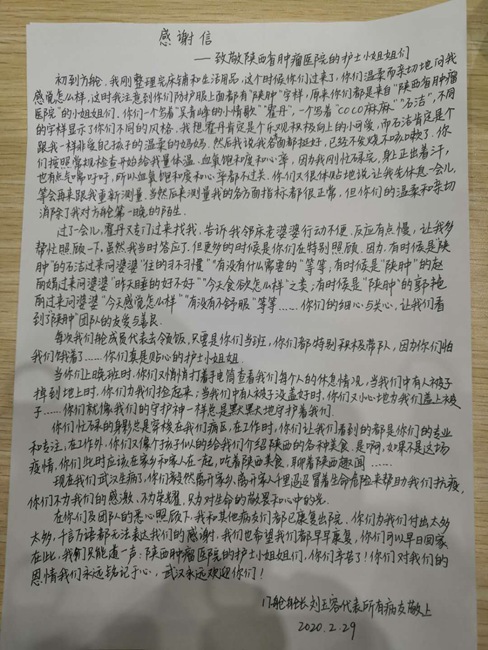 感谢信
——致敬陕西省肿瘤医院的护士小姐姐们
初到方舱，我刚整理完床铺和生活用品，这个时候你们过来了，你们温柔而亲切地问我
感觉怎么样，这时我注意到你们防护服上面都有“陕肿”字样，原来你们都是来自“陕西省肿瘤
医院”的小姐姐们。你们一个写着“吴青峰的小情歌”“霍丹”，一个写着“COCO麻麻”“石洁”，不同
的字样显示了你们不同的风格。我想霍丹肯定是个乐观积极向上的小可爱，而石洁肯定是个
跟我一样非爱配孩子的温柔的妈妈。然后我说我各面都挺好，已经不发烧不咳嗽了。你
们按照常规检查开始给我量体温、血氧饱和度和心率，因为我刚忙碌完，身上正出着汗，
也有气喘吁吁，所以血氧饱和度和心率都不过关。你们又很体贴地说，让我先休息一会儿，
等会再来跟我重新测量，当然后来测量我的各方面指标都很正常，但你们的温柔和亲切
消除了我对方舱第一晚的陌生。
过了一会儿，霍丹又专门过来找我，告诉我邻床老婆婆行动不便，反应有点慢，让我多
帮忙照顾一下。虽然我当时答应了，但更多的时候是你们在特别照顾。因为，有时候是“陕
肿”的石洁过来问婆婆“住的习不习惯”“有没有什么需要的”等等，有时候是“陕肿”的赵
丽娟过来问婆婆“昨天睡的好不好”“今天食欲怎么样”之类，有时候是“陕肿”的郭艳
丽过来问婆婆“今天感觉怎么样”“有没有不舒服”等等……你们的细心与关心，让我们看
到了“陕肿”团队的友爱与善良。
每次我们舱成员代表去领饭，只要是你们当班，你们都特别积极带队，因为你们怕
我们饿着了……你们真是贴心的护士小姐姐。
当你们上晚班时，你们又悄悄打着手电筒查看我们每个人的休息情况，当我们中有人被子
掉到地上时，你们为我们捡起来；当我们中有人被子没盖好时，你们又小心地为我们盖上被
子……你们就像我们的守护神一样总是默默地守护着我们。
你们忙碌的身影总是穿梭在我们病区，在工作时，你们让我们看到的都是你们的专业
和专注，在工作外，你们又像个孩子似的给我们介绍陕西的各种美食。是啊，如果不是这场
疫情，你们此时应该在家乡和家人在一起，吃着陕西美食，聊着陕西趣闻……
现在我们武汉生病了，你们毅然离开家乡、离开家人千里迢迢冒着生命危险来帮助我们抗疫，
你们不为我们的感激，不为荣耀，只为对生命的敬畏和心中的光。
在你们及团队的悉心照顾下，我和其他病友们都已康复出院，你们为我们付出太多
太多，千言万语都无法表达我们的感谢，我们也希望我们都早早康复，你们可以早日回家
在此，我们只能道一声：陕西肿瘤医院的护士小姐姐们，你们辛苦了！你们对我们的
恩情我们永远铭记于心，武汉永远欢迎你们！
门舱舱长刘玉容代表所有病友敬上
2020.2.29